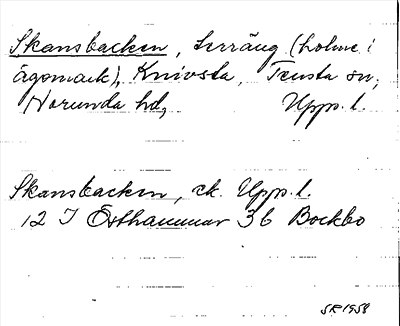 Skansbacken, Terräng (holme i
ägomark), Knivsta, Tensta sn,
Norunda hd, Upps. l.
Skansbacken, ek. Upps. l.
12 I Östhammar 3b Bockbo
SR 1958